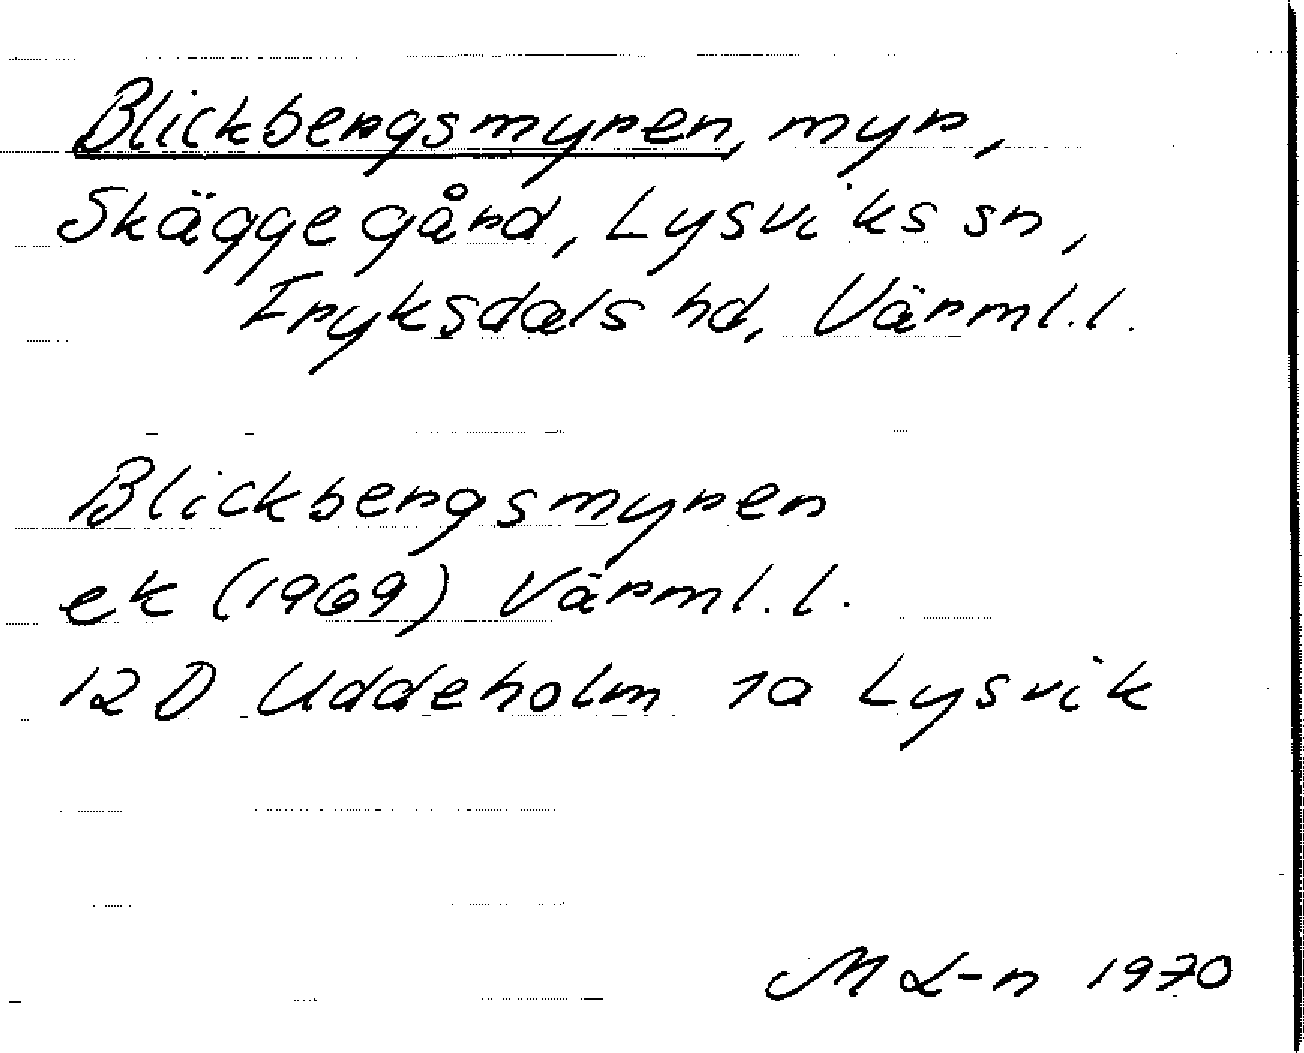 Blickbergsmyren, myr,
Skäggegård, Lysviks sn,
Fryksdals hd, Värml. l.
Blickbergsmyren
ek (1969) Värml. l.
12 D Uddeholm 1a Lysvik
M L-n 1970